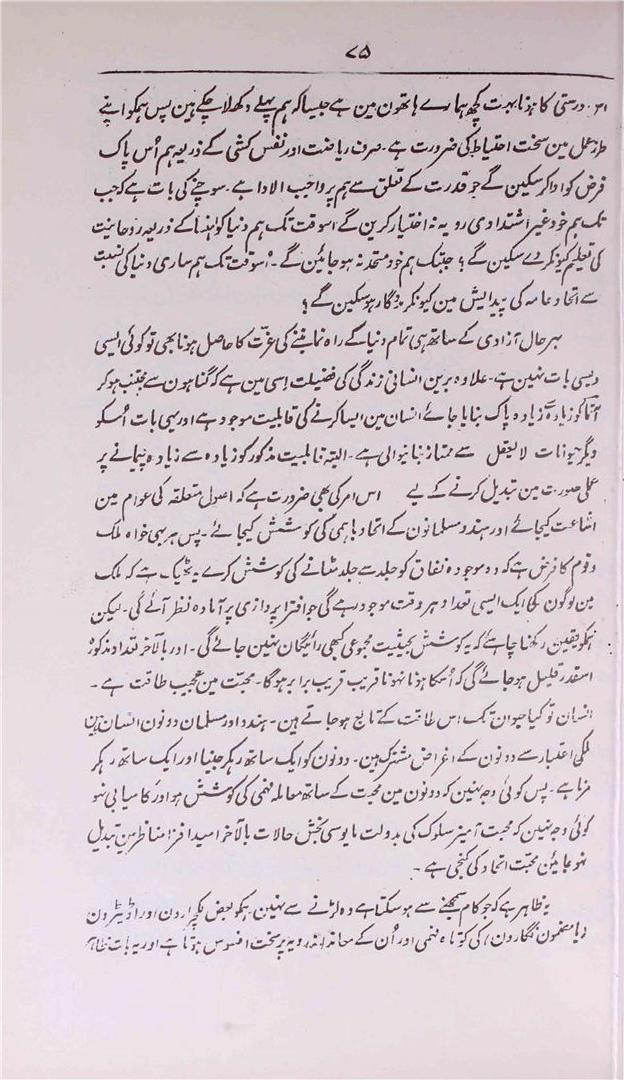 ۷۵
۳۱. درستی کا ہونا بہت کچھ ہمارے ہاتھون مین ہے جیسا کہ ہم پہلے دکھلا چکے ہین پس ہمکو اپنے
طرز عمل مین سخت احتیاط کی ضرورت ہے۔ صرف ریاضت اور نفس کشی کے ذریعہ ہم اُس پاک
فرض کو ادا کر سکین گے جو قدرت کے تعلق سے ہم پر واجب الادا ہے۔ سوچنے کی بات ہے کہ جب
تک ہم خود غیر اشتدادی رویہ نہ اختیار کرین گے اسوقت تک ہم دنیا کو اہنسا کے ذریعہ روحانیت
کی تعلیم کیونکر دے سکین گے؟ جبتک ہم خود متحد نہ ہو جائین گے۔ اُسوقت تک ہم ساری دنیا کی نسبت
سے اتحاد عامہ کی پیدایش مین کیونکر مددگار ہو سکین گے؟
بہر حال آزادی کے ساتھ ہی تمام دنیا کے راہ نما بننے کی عزّت کا حاصل ہونا بھی تو کوئی ایسی
ویسی بات نہین ہے۔ علاوہ برین انسانی زندگی کی فضیلت اِسی مین ہے کہ گناہون سے مجتنب ہو کر
آتما کو زیادہ سے زیادہ پاک بنایا جائے انسان مین ایسا کرنے کی قابلیت موجود ہے اور یہی بات اُسکو
دیگر حیوانات لا یعقل سے ممتاز بنانیوالی ہے۔ البتہ قابلیت مذکور کو زیادہ سے زیادہ پیمانے پر
عملی صورت مین تبدیل کرنے کے لیے اس امر کی بھی ضرورت ہے کہ اصول متعلقہ کی عوام مین
اشاعت کیجائے اور ہندو مسلمانون کے اتحاد باہمی کی کوشش کیجائے۔ پس ہر بہی خواہ ملک
و قوم کا فرض ہے کہ وہ موجودہ نفاق کو جلد سے جلد مٹانے کی کوشش کرے یہ ٹھیک ہے کہ ملک
مین لوگون کی ایک ایسی تعداد ہر وقت موجود رہے گی جو افترا پردازی پر آمادہ نظر آئے گی۔ لیکن
ہمکو یقین رکھنا چاہئے کہ یہ کوشش بحیثیت مجموعی کبھی رائیگان نہین جائے گی۔ اور بالآخر تعداد مذکورہ
اسقدر قلیل ہو جائے گی کہ اُسکا ہونا نہونا قریب قریب برابر ہوگا۔ محبت مین عجیب طاقت ہے۔
انسان تو کیا حیوان تک اس طاقت کے تابع ہو جاتے ہین۔ ہندو اور مسلمان دونون انسان ہین
ملکی اعتبار سے دونون کے اغراض مشترک ہین۔ دونون کو ایک ساتھ رہکر جینا اور ایک ساتھ رہکر
مرنا ہے۔ پس کوئی وجہ نہین کہ دونون مین محبت کے ساتھ معاملہ فہمی کی کوشش ہو اور کامیابی نہو
کوئی وجہ نہین کہ محبت آمیز سلوک کی بدولت مایوسی بخش حالات بالآخر امید افزا مناظر مین تبدیل
نہو جائین محبت اتحاد کی کنجی ہے۔
یہ ظاہر ہے کہ جو کام سمجھنے سے ہو سکتا ہے وہ لڑنے سے نہین، ہمکو بعض لکچرارون اور اڈیٹرون
(یا مضمون نگارون) کی کوتاہ فہمی اور اُن کے معاندانہ رویہ پر سخت افسوس ہوتا ہے اور یہ بات ظاہر